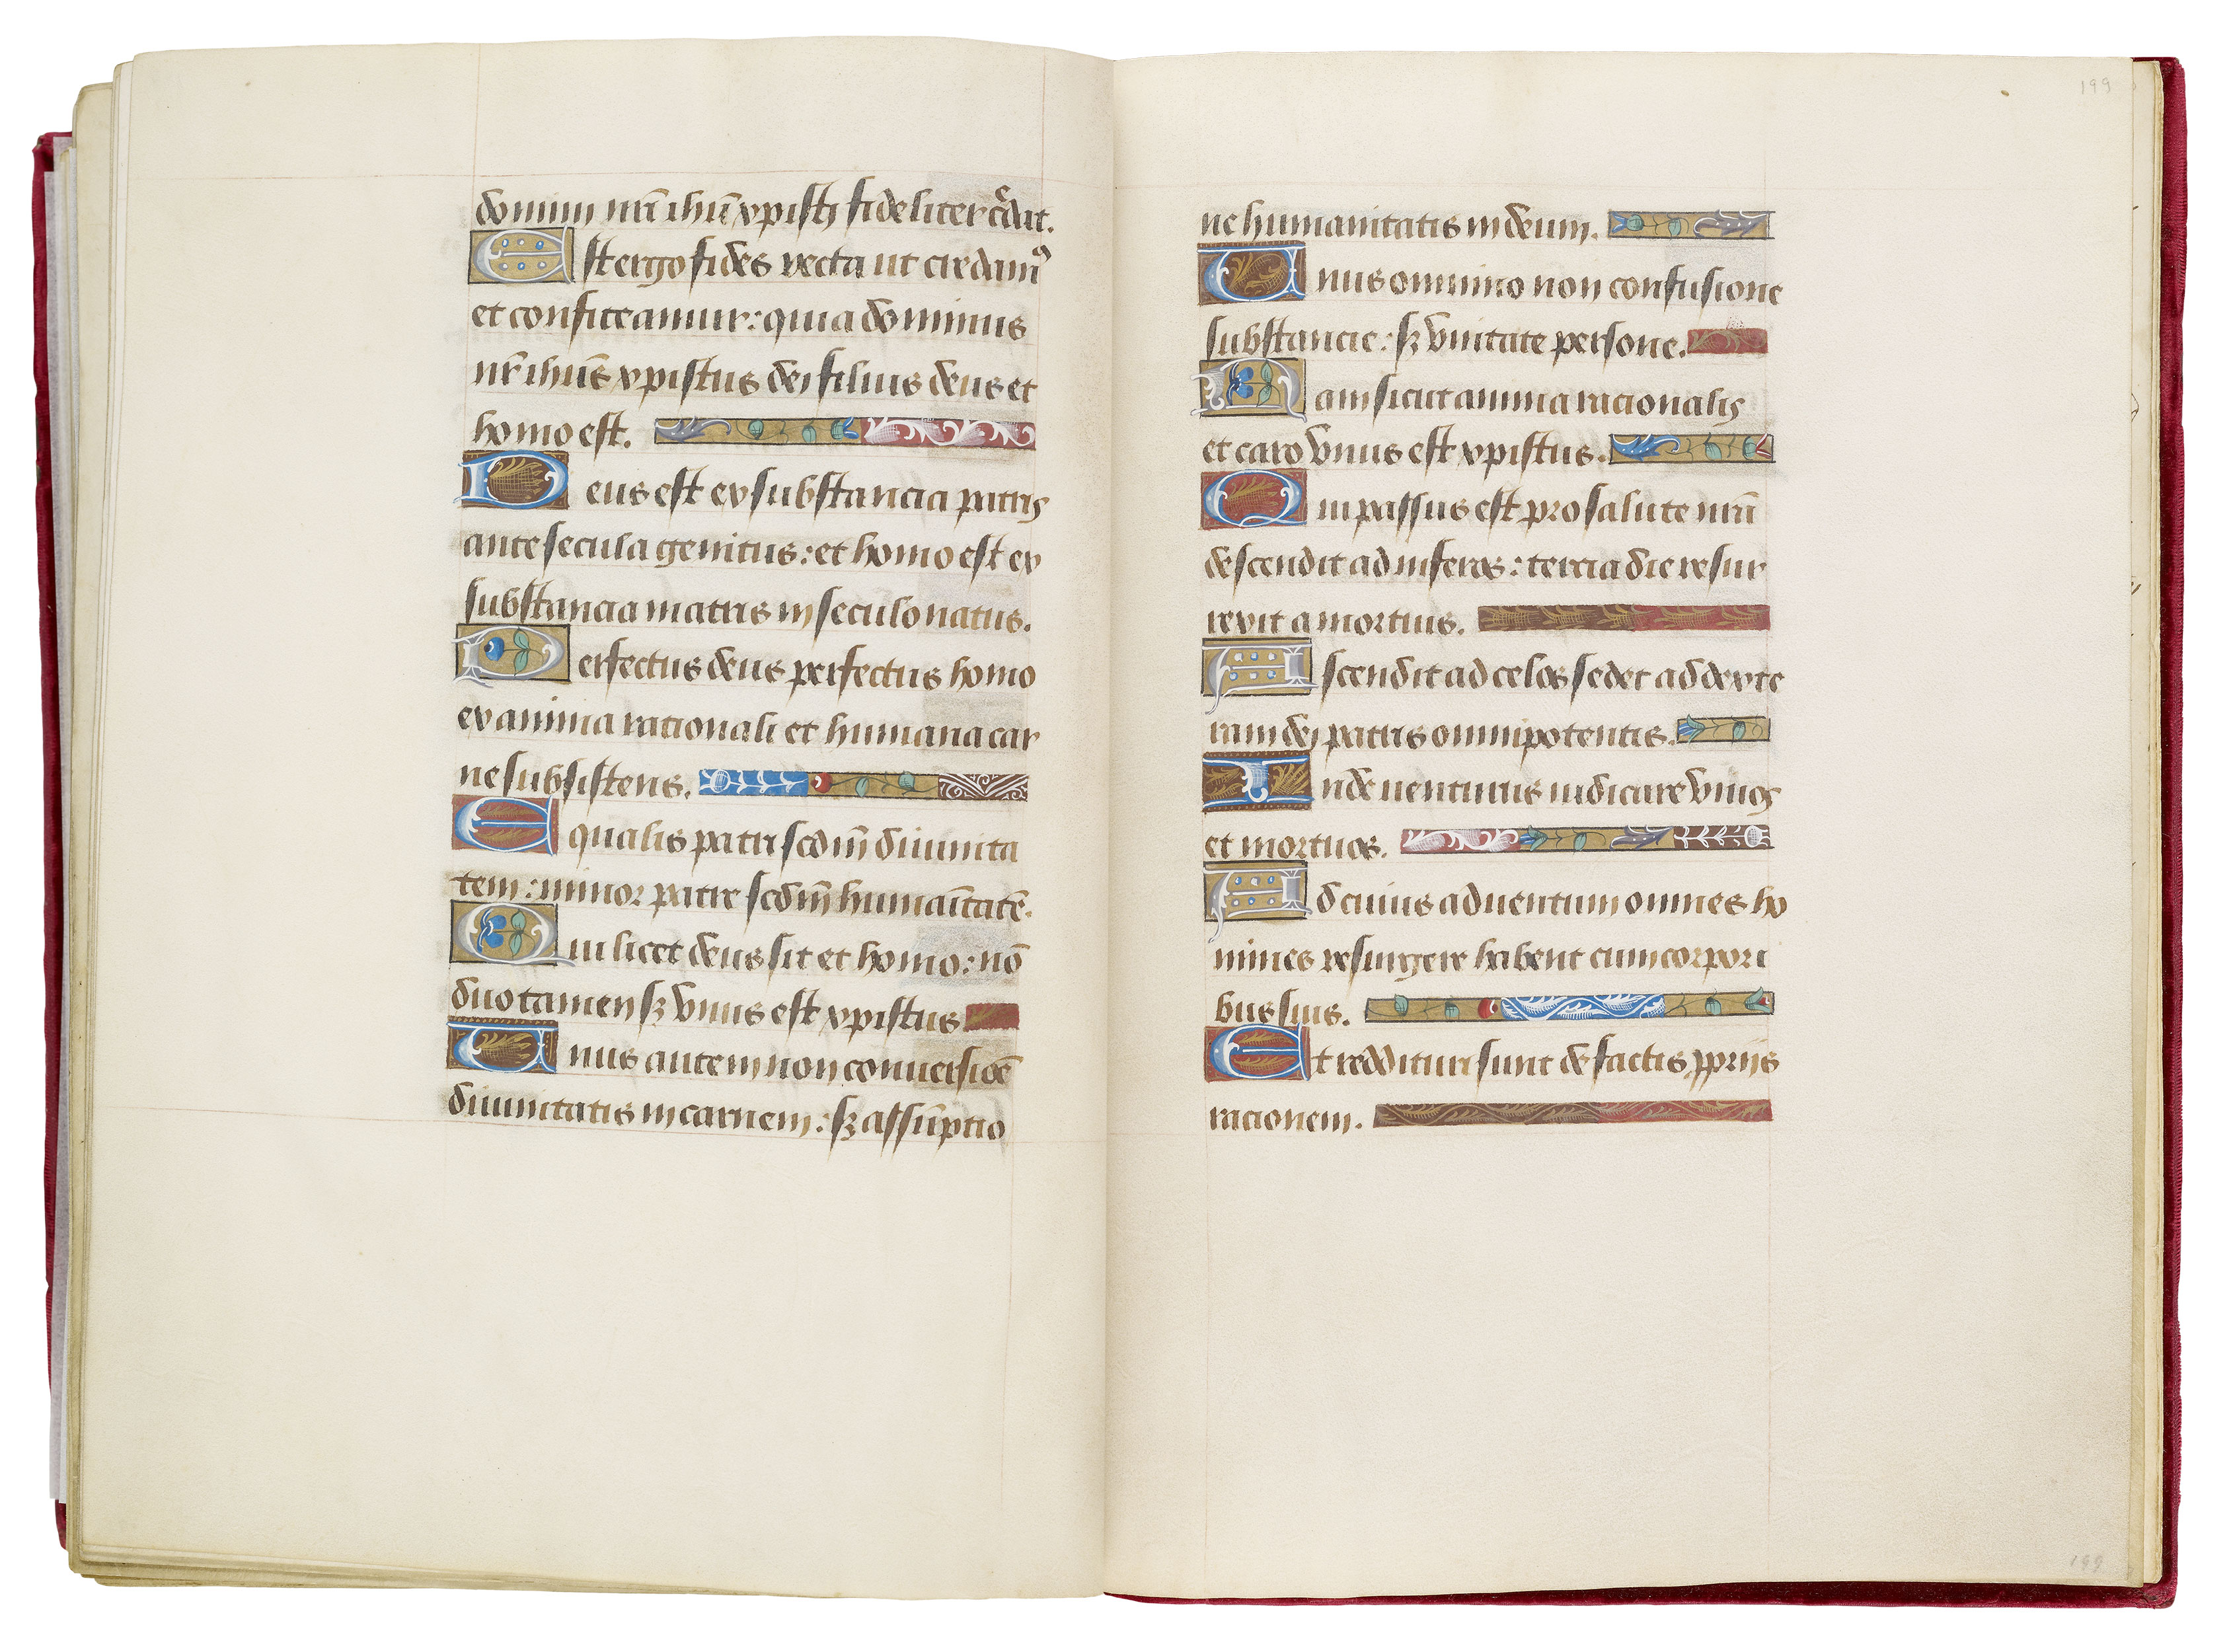 domini nr̄i ihū xpisti fideliter c̄dat.
Est ergo fides recta ut credamꝰ
et confiteamur: quia dominus
nr̄ ihūs xpistus dei filius deus et
homo est.
Deus est ex substancia patris
ante secula genitus: et homo est ex
substancia matris in seculo natus.
Perfectus deus perfectus homo
ex anima racionali et humana car
ne subsistens.
Equalis patri scdm̄ diuinita
tem: minor patre scdm̄ humaītatē.
Qui licet deus sit et homo: nō
duo tamen sꝫ vnus est xpistus
Unus autem non conuersiōe
diuinitatis in carnem: sꝫ assūptio
199
ne humanitatis in deum.
Unus omnino non confusione
substancie: sꝫ vnitate persone.
Nam sicut anima racionalis
et caro vnus est xpistus.
Qui passus est pro salute nr̄a
descendit ad inferos: tercia die resur
rexit a mortuis.
Ascendit ad celos sedet ad dexte
ram dei patris omnipotentis.
Inde uenturus iudicare viuos
et mortuos.
Ad cuius aduentum omnes ho
mines resurgere habent cum corpori
bus suis.
Et reddituri sunt de factis ꝓprijs
racionem.
199